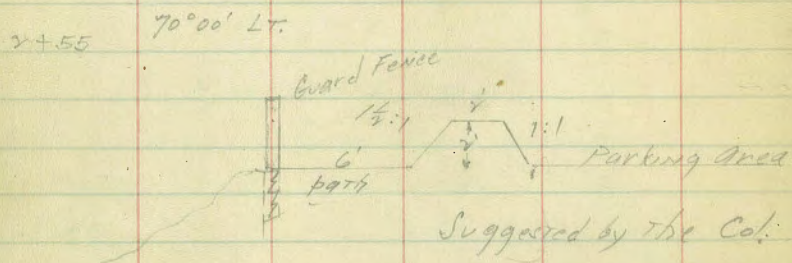 70°00' LT.
2+55
Guard Fence
1½:1
2'
1:1
2'
6'
path
Parking Area
Suggested by the Col.